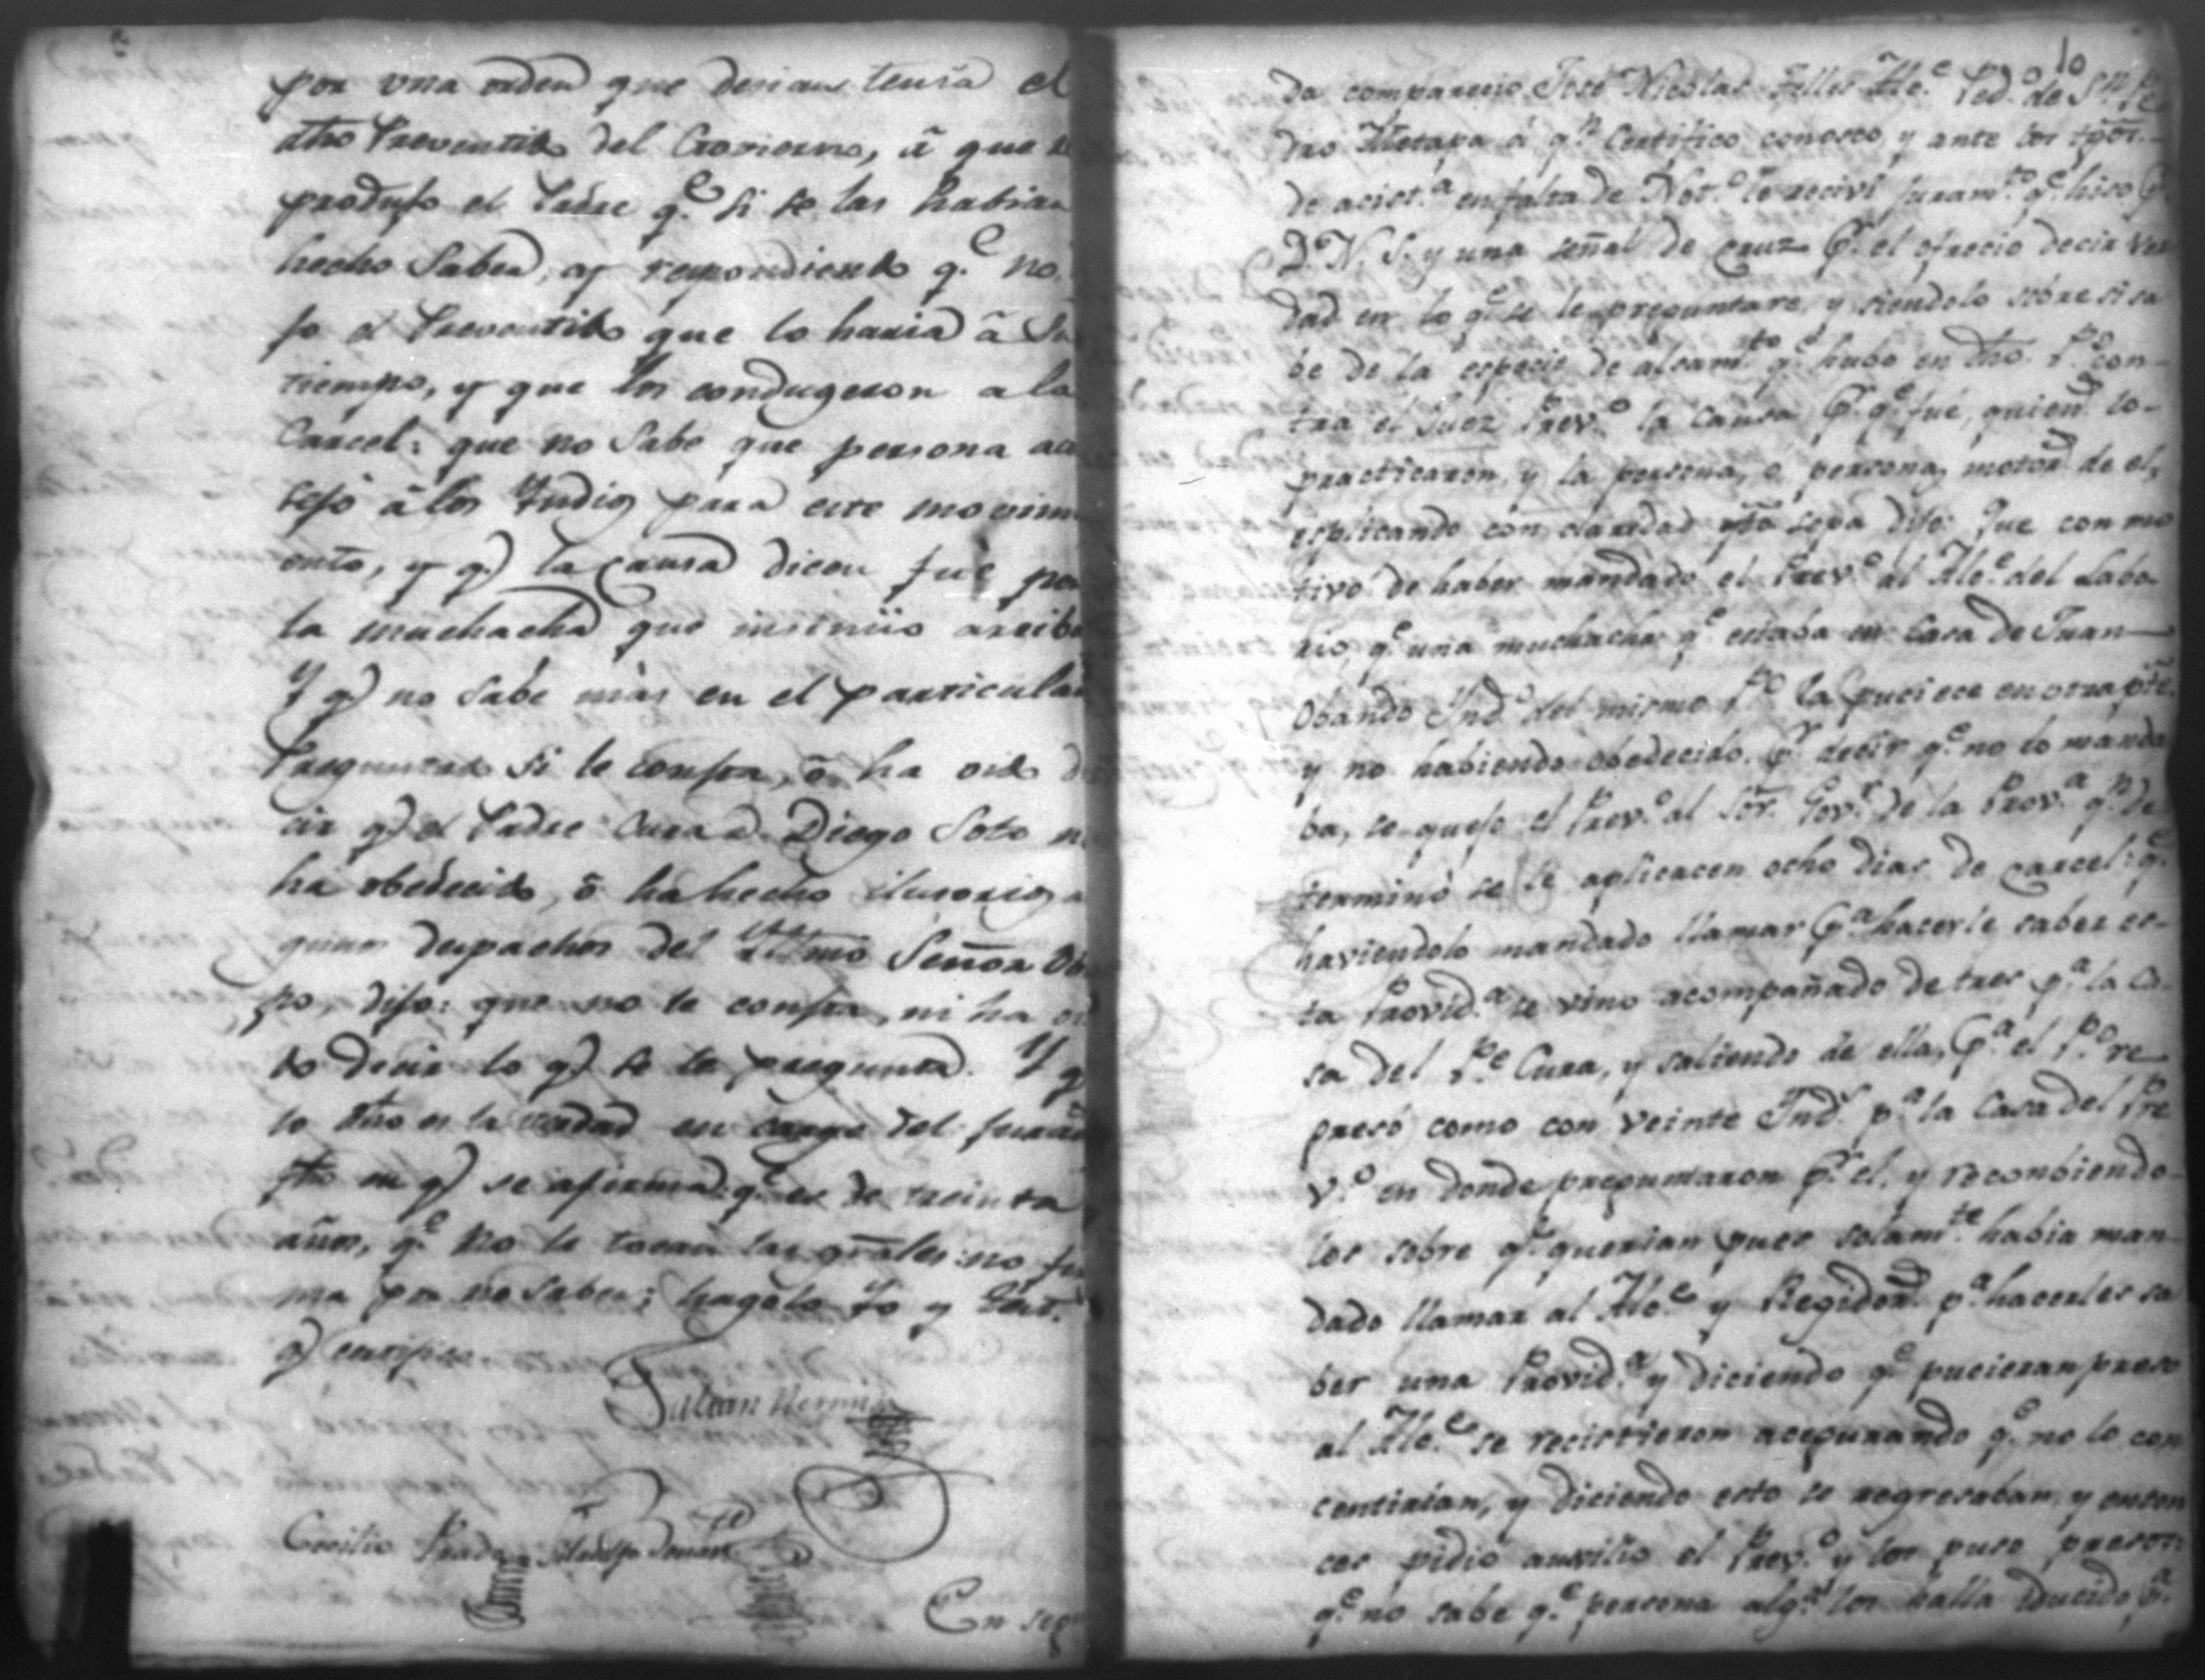 por vna orden que desian tenia el
dho Preventibo del Govierno, â que re
produjo el Padre q.e si se las habian
hecho Saber, y respondiendo q.e no,
jo el Preventibo que lo haria â Su
tiempo, y que los condugeron a la
Carcel: que no Sabe que persona acon
sejó â los Yndios para este movimi
ento, y q.e la causa dicen fue por
la muchacha que insinúo arriba
Y q.e no Sabe más en el particular
Preguntado Si le consta, ô ha oido de
cir q.e el Padre Cura D. Diego Soto no
ha obedecido, ô ha hecho ilusorios a
gunos despachos del Illmô Señor Obis
po, dijo: que no le consta, ni ha oi
do decir lo q.e se le pregunta. Y q
lo dho es la verdad en cargo del juram
tô en q.e se afirma: q.e es de treinta
años, q.e no le tocan las grâles: no fir
ma por no Saber; hagolo Yo y Test.s
q.e certifico
Julian
Cecilio Prada
En seg
10
da comparecio José Nicolas Telles Alc.e Ped.o de Sn. Pe
dro Metapa á q.n Certifico conosco, y ante los tgos.
de acist.a en falta de Not.o le recivi juram.to q.e hiso P.r
D. N. S. y una señal de Cruz P.r el ofrecio decir ver
dad en lo q.e se le preguntare, y siendolo sobre si sa
be de la especie de alsam.to q.e hubo en dho P.o con-
tra el Juez Prev.o la Causa P.r q.e fué, quienes lo-
practicaron, y la persona, o personas motoras de el,
esplicando con claridad qto sepa dijo: Que con mo
tivo de haber mandado el Prev.o al Alc.e del Labo
rio, q.e una muchacha q.e estaba en Casa de Juan
Obando Ind.o del mismo P.o la puciece en otra pte.
y no habiendo obedecido, P.r decir q.e no lo manda
ba, se quejo el Prev.o al Sôr. Gov.r de la Prov.a q.n de
terminó se le aplicacen ocho dias de carcel: q.e
haviendolo mandado llamar P.a hacerle saber es-
ta Provid.a se vino acompañado de tres p.a la Ca-
sa del P.e Cura, y saliendo de ella, P.a el P.o re
gresó como con veinte Ind.s p.a la Casa del Pre
v.o en donde preguntaron P.r el, y reconbiendo-
los sobre q.e querian pues solam.te habia man
dado llamar al Alc.e y Regidor.s p.a hacerles sa
ber una Provid.a y diciendo q.e pucieran preso
al Alc.e se recistieron acegurando q.e no lo con
centirian, y diciendo esto se regresaban, y enton
ces pidio auxilio el Prev.o y los puso presos:
q.e no sabe q.e persona alg.a los halla educido p.a